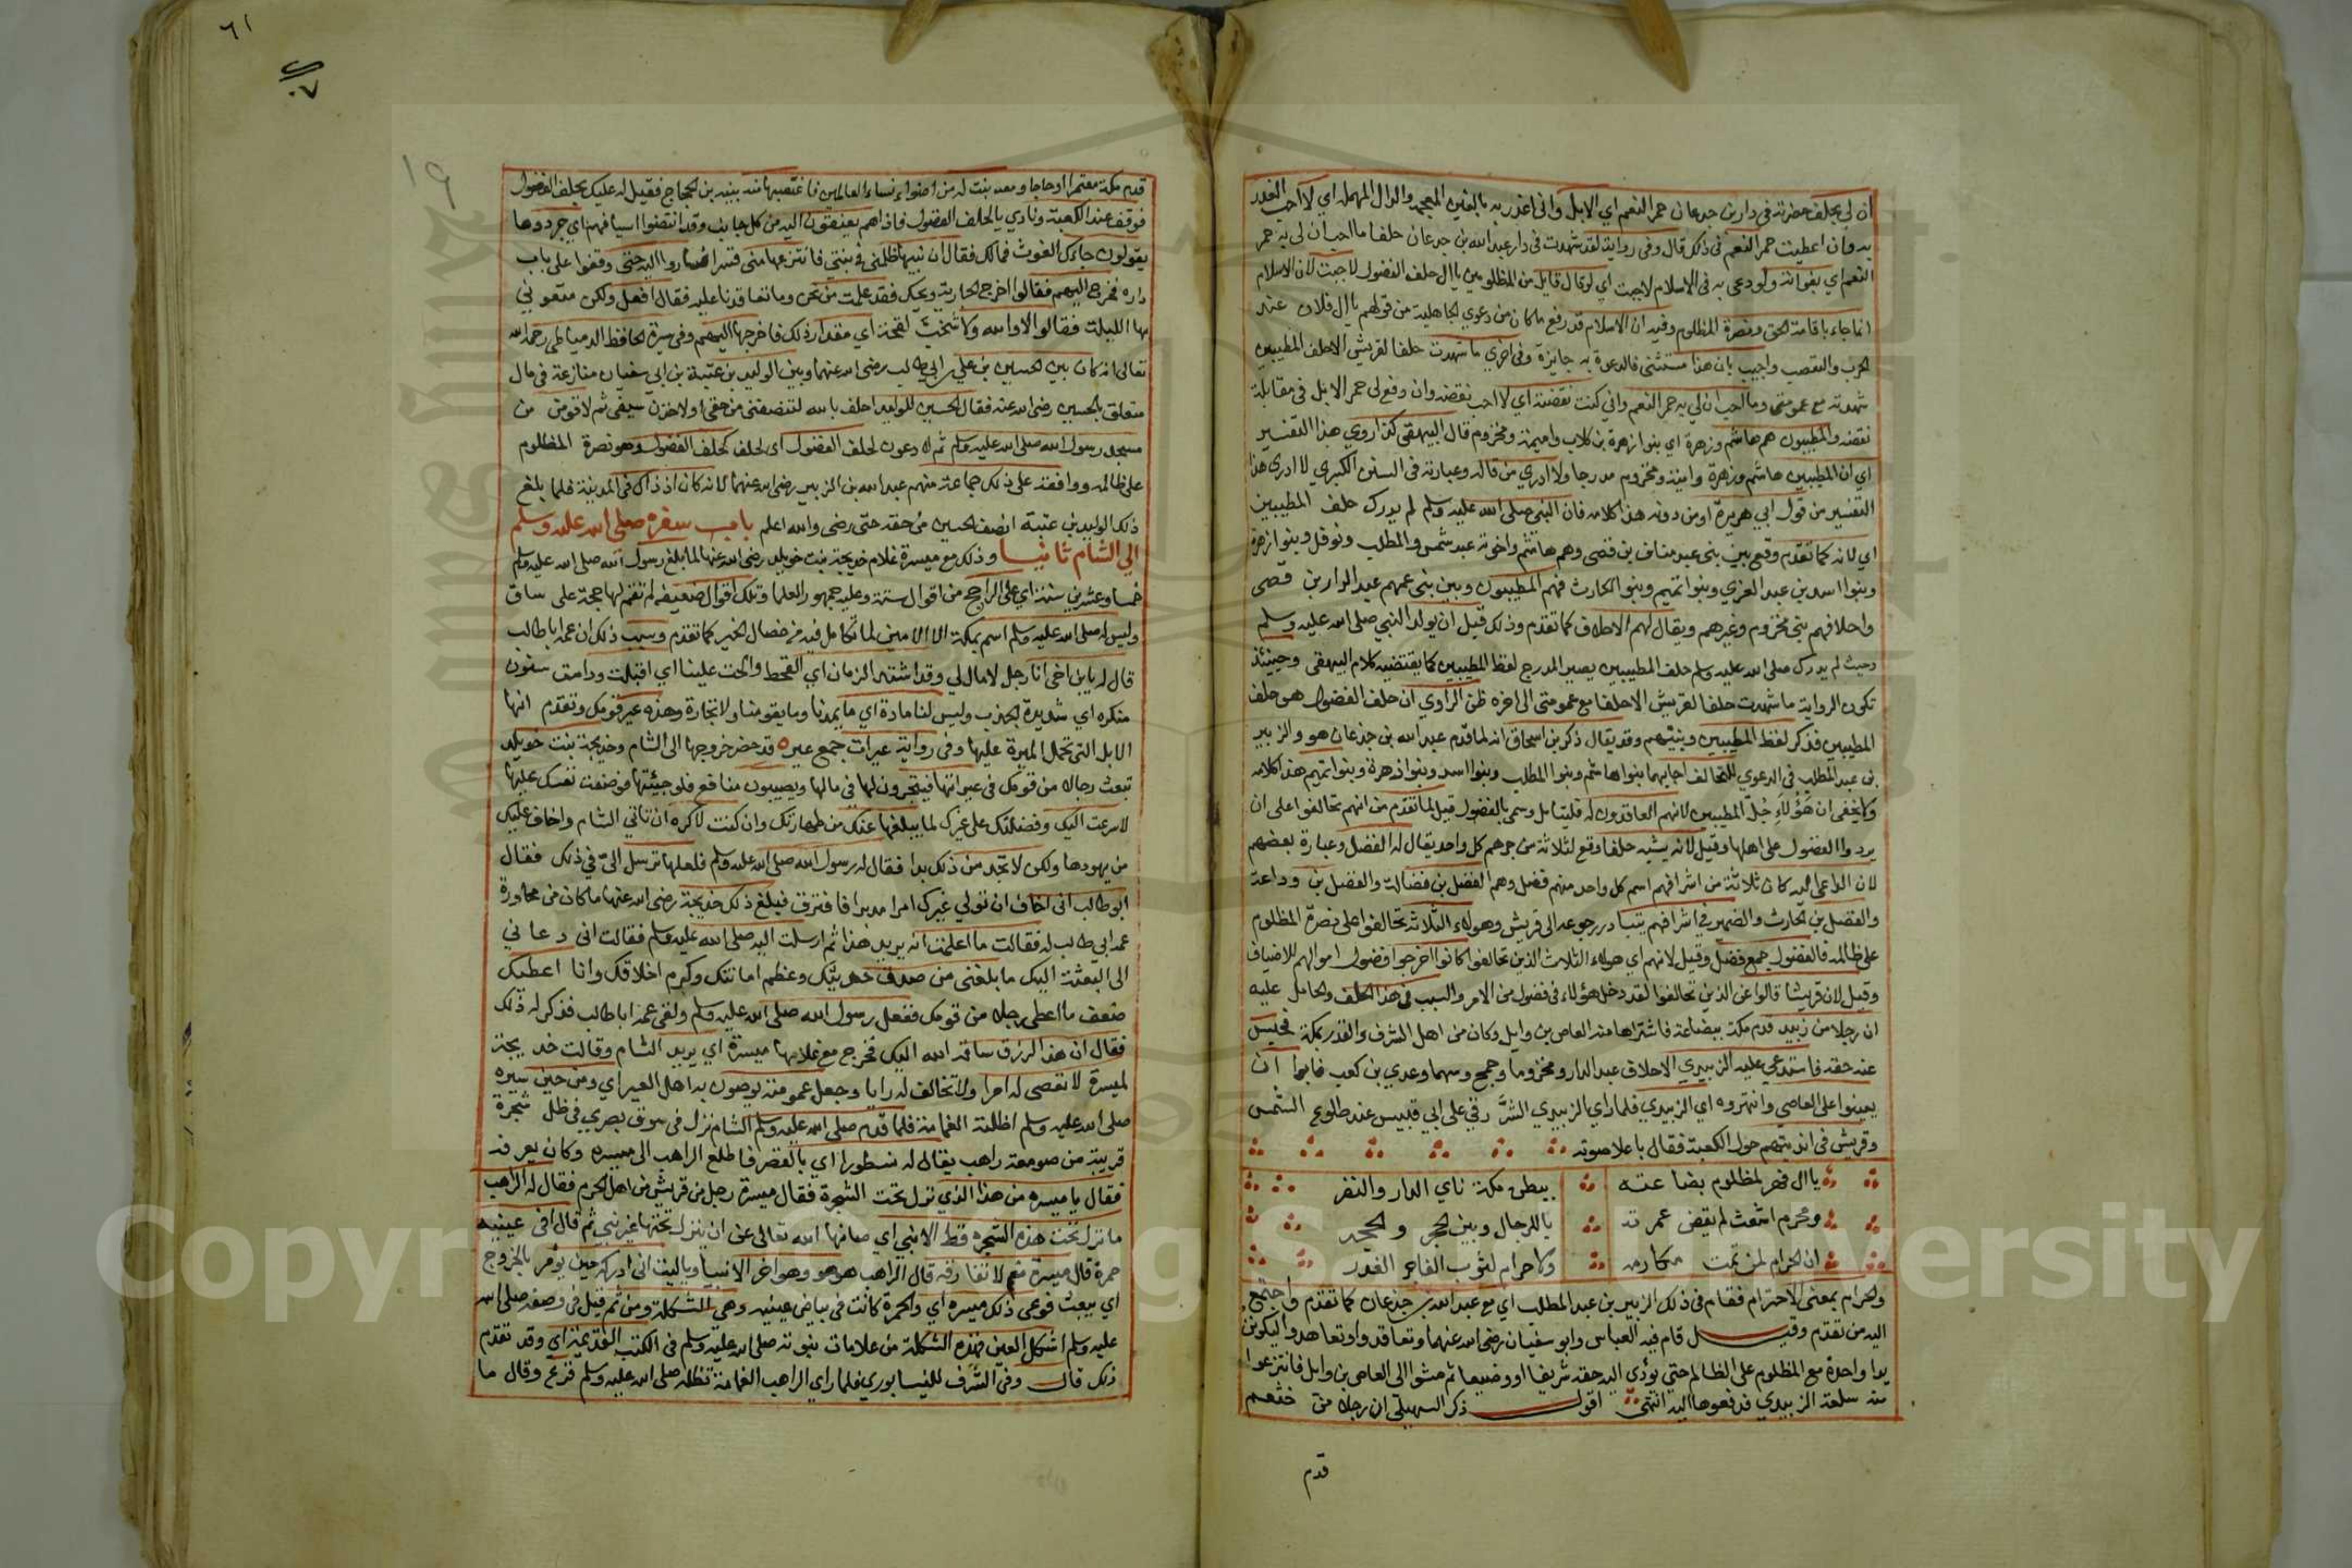 ان لي بحلف حضرته في دار بن جدعان حمر النعم اي الابل واني اغدر به بالغين المعجمة والدال المهملة اي لا احب الغدر
به وان اعطيت حمر النعم في ذلك قال وفي رواية لقد شهدت في دار عبد الله بن جدعان حلفا ما احب ان لي به حمر
النعم اي بفواته ولو دعي به في الاسلام لاجبت اي لو قال قايل من المظلومين يا ال حلف الفضول لاجبت لان الاسلام
انما جاء باقامة الحق ونصرة المظلوم وفيه ان الاسلام قد رفع ما كان من دعوي الجاهلية من قولهم يا ال فلان عند
الحرب والتعصب واجيب بان هذا مستثنى فالدعوة به جايزة وفي اخري ما شهدت حلفا لقريش الا حلف المطيبين
شهدته مع عمومتي وما احب ان لي به حمر النعم واني كنت نقضته اي لا احب نقضه وان دفع لي حمر الابل في مقابلة
نقضه والمطيبون هم هاشم وزهرة اي بنوا زهرة بن كلاب واميمة ومخزوم قال البيهقي كذا روي هذا التفسير
اي ان المطيبين هاشم وزهرة وامية ومخزوم مدرجا ولا ادري من قاله وعبارته في السنن الكبري لا ادري هذا
التفسير من قول ابي هريرة او من دونه هذا كلامه فان النبي صلى الله عليه وسلم لم يدرك حلف المطيبين
اي لانه كما تقدم وقع بين بني عبد مناف بن قصي وهم هاشم واخوته عبد شمس والمطلب ونوفل وبنوا زهرة
وبنوا اسد بن عبد العزي وبنوا تميم وبنوا الحارث فهم المطيبون وبين بني عمهم عبد الدار بن قصي
واحلافهم بني مخزوم وغيرهم ويقال لهم الاحلاف كما تقدم وذلك قبل ان يولد النبي صلى الله عليه وسلم
وحيث لم يدرك صلى الله عليه وسلم حلف المطيبين يصير المدرج لفظ المطيبين كما يقتضيه كلام البيهقي وحينئذ
تكون الرواية ما شهدت حلفا لقريش الا حلفا مع عمومتي الى اخره ظن الراوي ان حلف الفضول هو حلف
المطيبين فذكر لفظ المطيبين وبنيهم وقد يقال ذكر بن اسحاق انه لما قدم عبد الله بن جدعان هو والزبير
بن عبد المطلب في الدعوي للتحالف اجابهما بنوا هاشم وبنوا المطلب وبنوا اسد وبنوا زهرة وبنوا تميم هذا كلامه
ولا يخفى ان هؤلاء جُلّ المطيبين لانهم العاقدون له فليتامل وسمي بالفضول قيل لما تقدم من انهم تحالفوا على ان
يردوا الفضول على اهلها وقيل لانه يشبه حلفا وقع لثلاثة من جرهم كل واحد يقال له الفضل وعبارة بعضهم
لان الداعي اليه كان ثلاثة من اشرافهم اسم كل واحد منهم فضل وهم الفضل بن فضالة والفضل بن وداعة
والفضل بن الحارث والضمير في اشرافهم يتبادر رجوعه الى قريش وهولاء الثلاثة تحالفوا على نصرة المظلوم
على ظالمه فالفضول جمع فضل وقيل لانهم اي هولاء الثلاث الذين تحالفوا كانوا اخرجوا فضول اموالهم للاضياف
وقيل لان قريشا قالوا عن الذين تحالفوا لقد دخل هؤلاء في فضول من الامر والسبب في هذا الحلف والحامل عليه
ان رجلا من زبيد قدم مكة ببضاعة فاشتراها منه العاص بن وايل وكان من اهل الشرف والقدر بمكة فحبس
عنه حقه فاستدعي عليه الزبيدي الاحلاف عبد الدار ومخزوما وجمح وسهما وعدي بن كعب فابوا ان
يعينوا على العاصي وانتهروه اي الزبيدي فلما راي الزبيدي الشرَّ رقي على ابي قبيس عند طلوع الشمس
وقريش في انديتهم حول الكعبة فقال باعلا صوته
يا ال فهر لمظلوم بضاعته ببطن مكة ناي الدار والنفر
ومحرم اشعث لم يقض عمرته يا للرجال وبين الحجر والحجر
ان الحرام لمن تمت مكارمه ولا حرام لثوب الفاجر الغدر
والحرام بمعنى الاحترام فقام في ذلك الزبير بن عبد المطلب اي مع عبد الله بن جدعان كما تقدم واجتمع
اليه من تقدم وقيل قام فيه العباس وابو سفيان رضي الله عنهما وتعاقدوا وتعاهدوا ليكونن
يدا واحدة مع المظلوم على الظالم حتى يؤدي اليه حقه شريفا او وضيعا ثم مشوا الى العاص بن وايل فانتزعوا
منه سلعة الزبيدي فدفعوها اليه انتهى اقول ذكر السهيلي ان رجلا من خثعم
قدم
٦١
قدم مكة معتمرا او حاجا ومعه بنت له من اضواء نساء العالمين فاغتصبها منه نبيه بن الحجاج فقيل له عليك بحلف الفضول
فوقف عند الكعبة ونادي يا لحلف الفضول فاذا هم يعنقون اليه من كل جانب وقد انتضوا اسيافهم اي جردوها
يقولون جاءك الغوث فمالك فقال ان نبيها ظلمني في بنتي فانتزعها مني قسرا فساروا اليه حتى وقفوا على باب
داره فخرج اليهم فقالوا اخرج الجارية ويحك فقد علمت من نحن وما تعاقدنا عليه فقال افعل ولكن متعوني
بها الليلة فقالوا لا والله ولا شخب لقحة اي مقدار ذلك فاخرجها اليهم وفي سيرة الحافظ الدمياطي رحمه الله
تعالى انه كان بين الحسين بن علي بن ابي طالب رضي الله عنهما وبين الوليد بن عتبة بن ابي سفيان منازعة في مال
متعلق بالحسين رضي الله عنه فقال الحسين للوليد احلف بالله لتنصفني من حقي او لاخذن سيفي ثم لاقومن من
مسجد رسول الله صلى الله عليه وسلم ثم لا دعون لحلف الفضول اي لحلف كحلف الفضول وهو نصرة المظلوم
على ظالمه ووافقه على ذلك جماعة منهم عبد الله بن الزبير رضي الله عنهما لانه كان اذ ذاك في المدينة فلما بلغ
ذلك الوليد بن عتبة انصف الحسين من حقه حتى رضي والله اعلم باب سفره صلى الله عليه وسلم
الي الشام ثانيا وذلك مع ميسرة غلام خديجة بنت خويلد رضي الله عنها لما بلغ رسول الله صلى الله عليه وسلم
خمسا وعشرين سنة اي على الراجح من اقوال ستة وعليه جمهور العلما وتلك اقوال ضعيفه لم تقم لها حجة على ساق
وليس له صلى الله عليه وسلم اسم بمكة الا الامين لما تكامل فيه من خصال الخير كما تقدم وسبب ذلك ان عمه ابا طالب
قال له يا بن اخي انا رجل لا مال لي وقد اشتد الزمان اي القحط والحت علينا اي اقبلت ودامت سنون
منكره اي شديدة الجذب وليس لنا مادة اي ما يمدنا وما يقومنا ولا تجارة وهذه عير قومك وتقدم انها
الابل التي تحمل الميرة عليها وفي رواية عيرات جمع عيره قد حضر خروجها الى الشام وخديجة بنت خويلد
تبعث رجالا من قومك في عيراتها فيتجرون لها في مالها ويصيبون منافع فلو جيئتها فوضعت نفسك عليها
لاسرعت اليك وفضلتك على غيرك لما يبلغها عنك من طهارتك وان كنت لاكره ان تاتي الشام واخاف عليك
من يهودها ولكن لا تجد من ذلك بدا فقال له رسول الله صلى الله عليه وسلم فلعلها ترسل اليّ في ذلك فقال
ابو طالب اني اخاف ان تولي غيرك امرا مدبرا فافترق فبلغ ذلك خديجة رضي الله عنها ما كان من محاورة
عمه ابي طالب له فقالت ما اعلمت انه يريد هذا ثم ارسلت اليه صلى الله عليه وسلم فقالت اني دعاني
الى البعثة اليك ما بلغني من صدق حديثك وعظم امانتك وكرم اخلاقك وانا اعطيك
ضعف ما اعطي رجلا من قومك ففعل رسول الله صلى الله عليه وسلم ولقي عمه ابا طالب فذكر له ذلك
فقال ان هذا الرزق ساقه الله اليك فخرج مع غلامها ميسرة اي يريد الشام وقالت خديجة
لميسرة لا تعصى له امرا ولا تخالف له رايا وجعل عمومته يوصون به اهل العير اي ومن حين سيره
صلى الله عليه وسلم اظلته الغمامة فلما قدم صلى الله عليه وسلم الشام نزل في سوق بصري في ظل شجرة
قريبة من صومعة راهب يقال له نسطورا اي بالقصر فاطلع الراهب الى ميسره وكان يعرفه
فقال يا ميسره من هذا الذي نزل تحت الشجرة فقال ميسرة رجل من قريش من اهل الحرم فقال له الراهب
ما نزل تحت هذه الشجره قط الا نبي اي صانها الله تعالى عن ان ينزل تحتها غير نبي ثم قال افي عينيه
حمرة قال ميسرة نعم لا تفارقه قال الراهب هو هو وهو اخر الانبيا ويا ليت اني ادركه حين يؤمر بالخروج
اي يبعث فوعى ذلك ميسره اي والحمرة كانت في بياض عينيه وهي الشكلة ومن ثم قيل في وصفه صلى الله
عليه وسلم اشكل العين فهذه الشكلة من علامات نبوته صلى الله عليه وسلم في الكتب القديمة اي وقد تقدم
ذلك قال وفي الشرف للنيسابوري فلما راي الراهب الغمامة تظله صلى الله عليه وسلم فزع وقال ما
Copyright © King Saud University